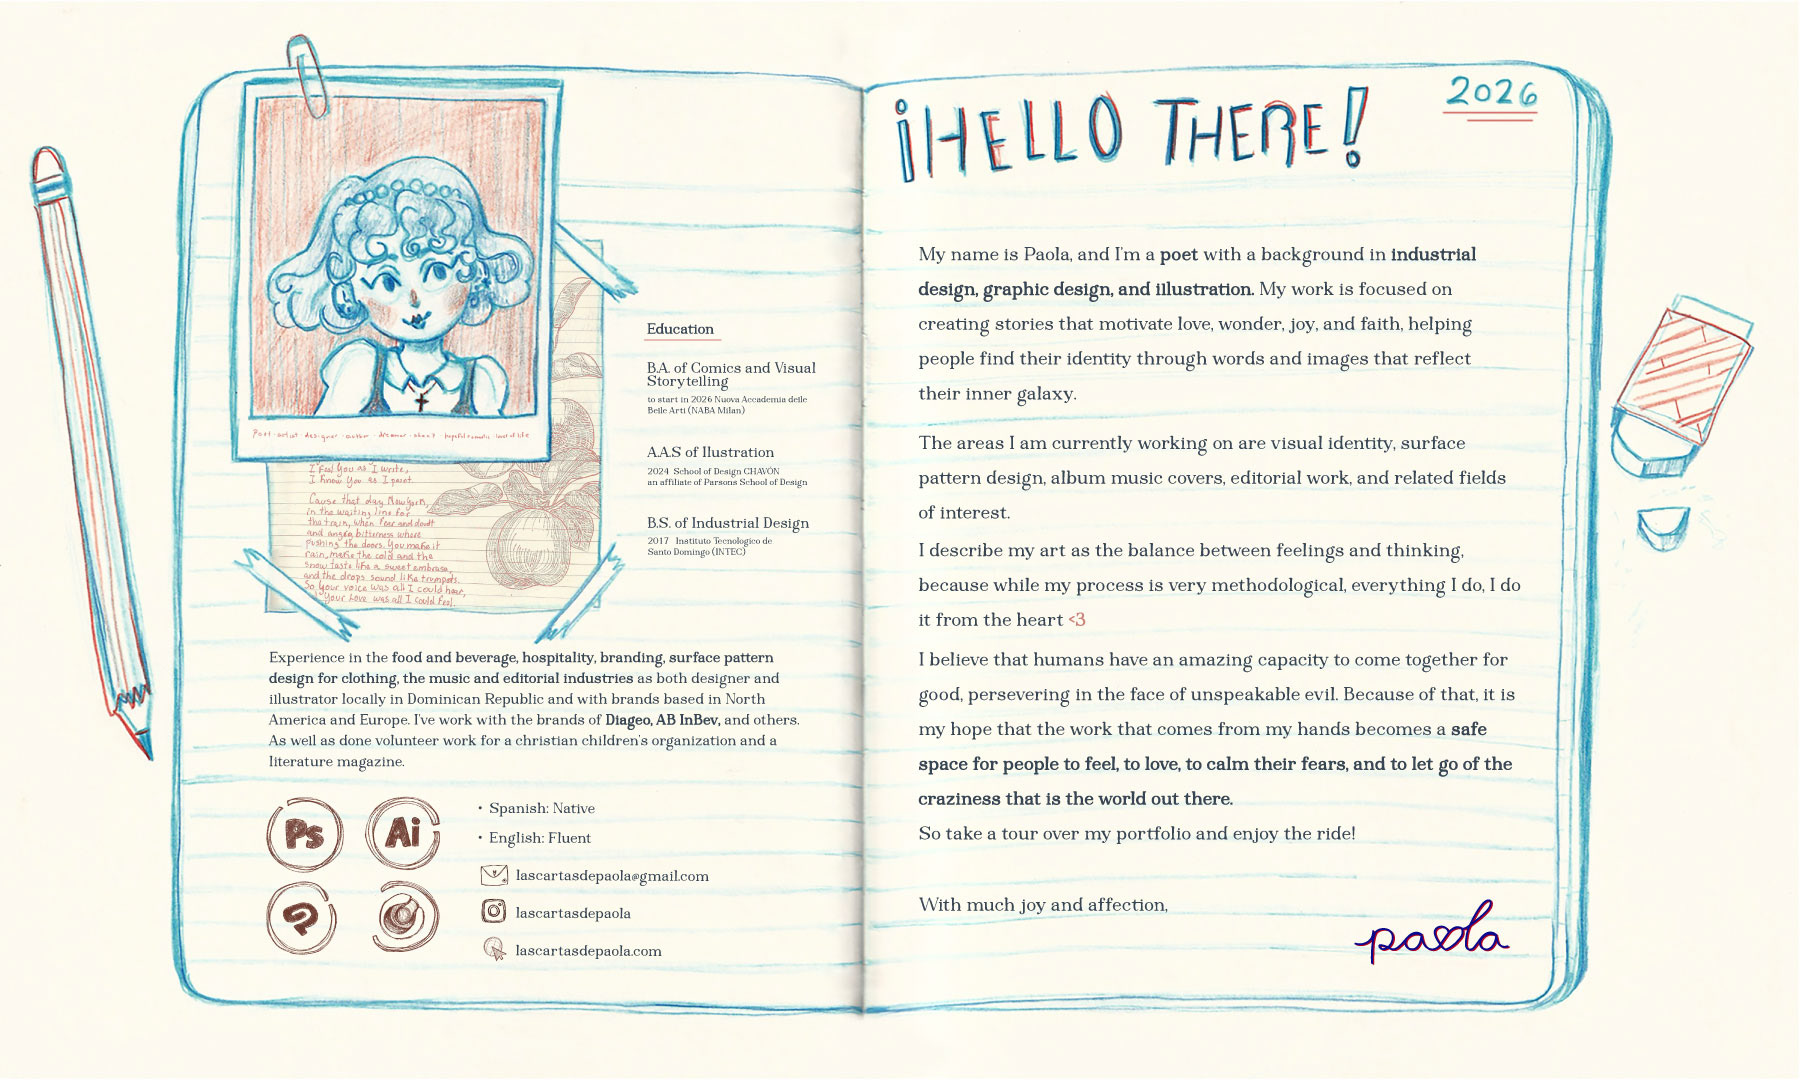 Post · artist · designer · author · dreamer · short · hopeful romantic · lover of life
I feel You as I write,
I know You as I paint.
Cause that day Nowgorn,
in the waiting line for
the train, when fear and doubt
and anger, bitterness where
pushing the doors. You make it
rain, make the cold and the
snow taste like a sweet embrase,
and the drops sound like trumpets.
So Your voice was all I could hear,
Your Love was all I could feel.
Education
B.A. of Comics and Visual
Storytelling
to start in 2026 Nuova Accademia delle
Belle Arti (NABA Milan)
A.A.S of Ilustration
2024 School of Design CHAVÓN
an affiliate of Parsons School of Design
B.S. of Industrial Design
2017 Instituto Tecnologico de
Santo Domingo (INTEC)
Experience in the food and beverage, hospitality, branding, surface pattern
design for clothing, the music and editorial industries as both designer and
illustrator locally in Dominican Republic and with brands based in North
America and Europe. I've work with the brands of Diageo, AB InBev, and others.
As well as done volunteer work for a christian children's organization and a
literature magazine.
Ps
Ai
• Spanish: Native
• English: Fluent
lascartasdepaola@gmail.com
lascartasdepaola
lascartasdepaola.com
¡HELLO THERE!
2026
My name is Paola, and I'm a poet with a background in industrial
design, graphic design, and illustration. My work is focused on
creating stories that motivate love, wonder, joy, and faith, helping
people find their identity through words and images that reflect
their inner galaxy.
The areas I am currently working on are visual identity, surface
pattern design, album music covers, editorial work, and related fields
of interest.
I describe my art as the balance between feelings and thinking,
because while my process is very methodological, everything I do, I do
it from the heart <3
I believe that humans have an amazing capacity to come together for
good, persevering in the face of unspeakable evil. Because of that, it is
my hope that the work that comes from my hands becomes a safe
space for people to feel, to love, to calm their fears, and to let go of the
craziness that is the world out there.
So take a tour over my portfolio and enjoy the ride!
With much joy and affection,
paola